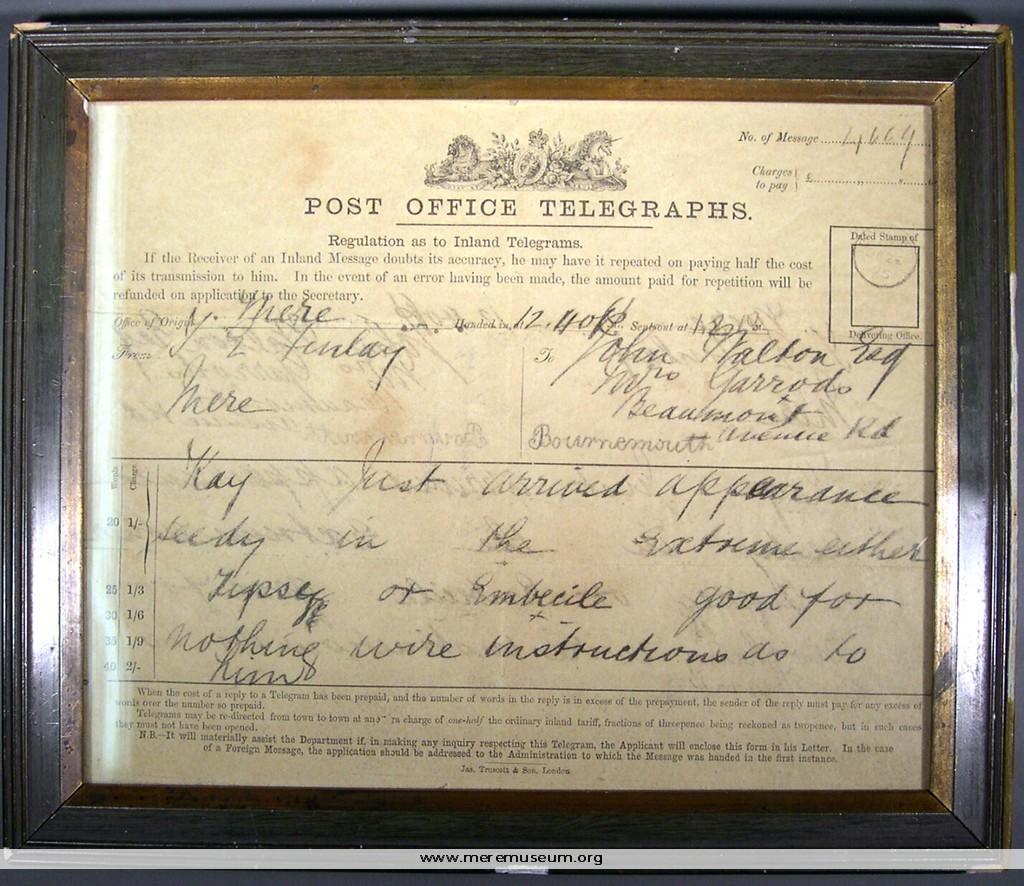 No. of Message
Charges to pay } £
POST OFFICE TELEGRAPHS.
Regulation as to Inland Telegrams.
If the Receiver of an Inland Message doubts its accuracy, he may have it repeated on paying half the cost
of its transmission to him. In the event of an error having been made, the amount paid for repetition will be
refunded on application to the Secretary.
Dated Stamp of
Delivering Office.
Office of Origin Mere Handed in 12.40 Sent out at
From Finlay
Mere
To John Walton Esq
Mrs Garrods
Beaumont
Avenue Rd
Bournemouth
Words Charge
20 1/-
25 1/3
30 1/6
35 1/9
40 2/-
Kay Just arrived appearance
seedy in the Extreme either
Tipsey or Embecile good for
nothing wire instructions as to
him
When the cost of a reply to a Telegram has been prepaid, and the number of words in the reply is in excess of the prepayment, the sender of the reply must pay for any excess of
words over the number so prepaid.
Telegrams may be re-directed from town to town at ra charge of one-half the ordinary inland tariff, fractions of threepence being reckoned as twopence, but in such cases
they must not have been opened.
N.B.—It will materially assist the Department if, in making any inquiry respecting this Telegram, the Applicant will enclose this form in his Letter. In the case
of a Foreign Message, the application should be addressed to the Administration to which the Message was handed in the first instance.
Jas. Truscott & Son, London
www.meremuseum.org